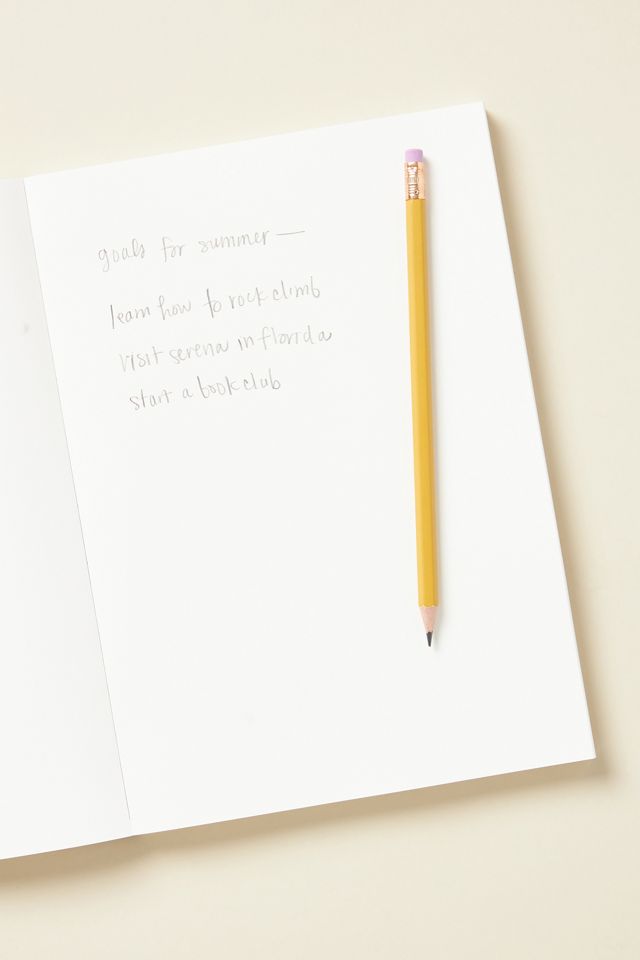 goals for summer —
learn how to rock climb
visit serena in florida
start a book club